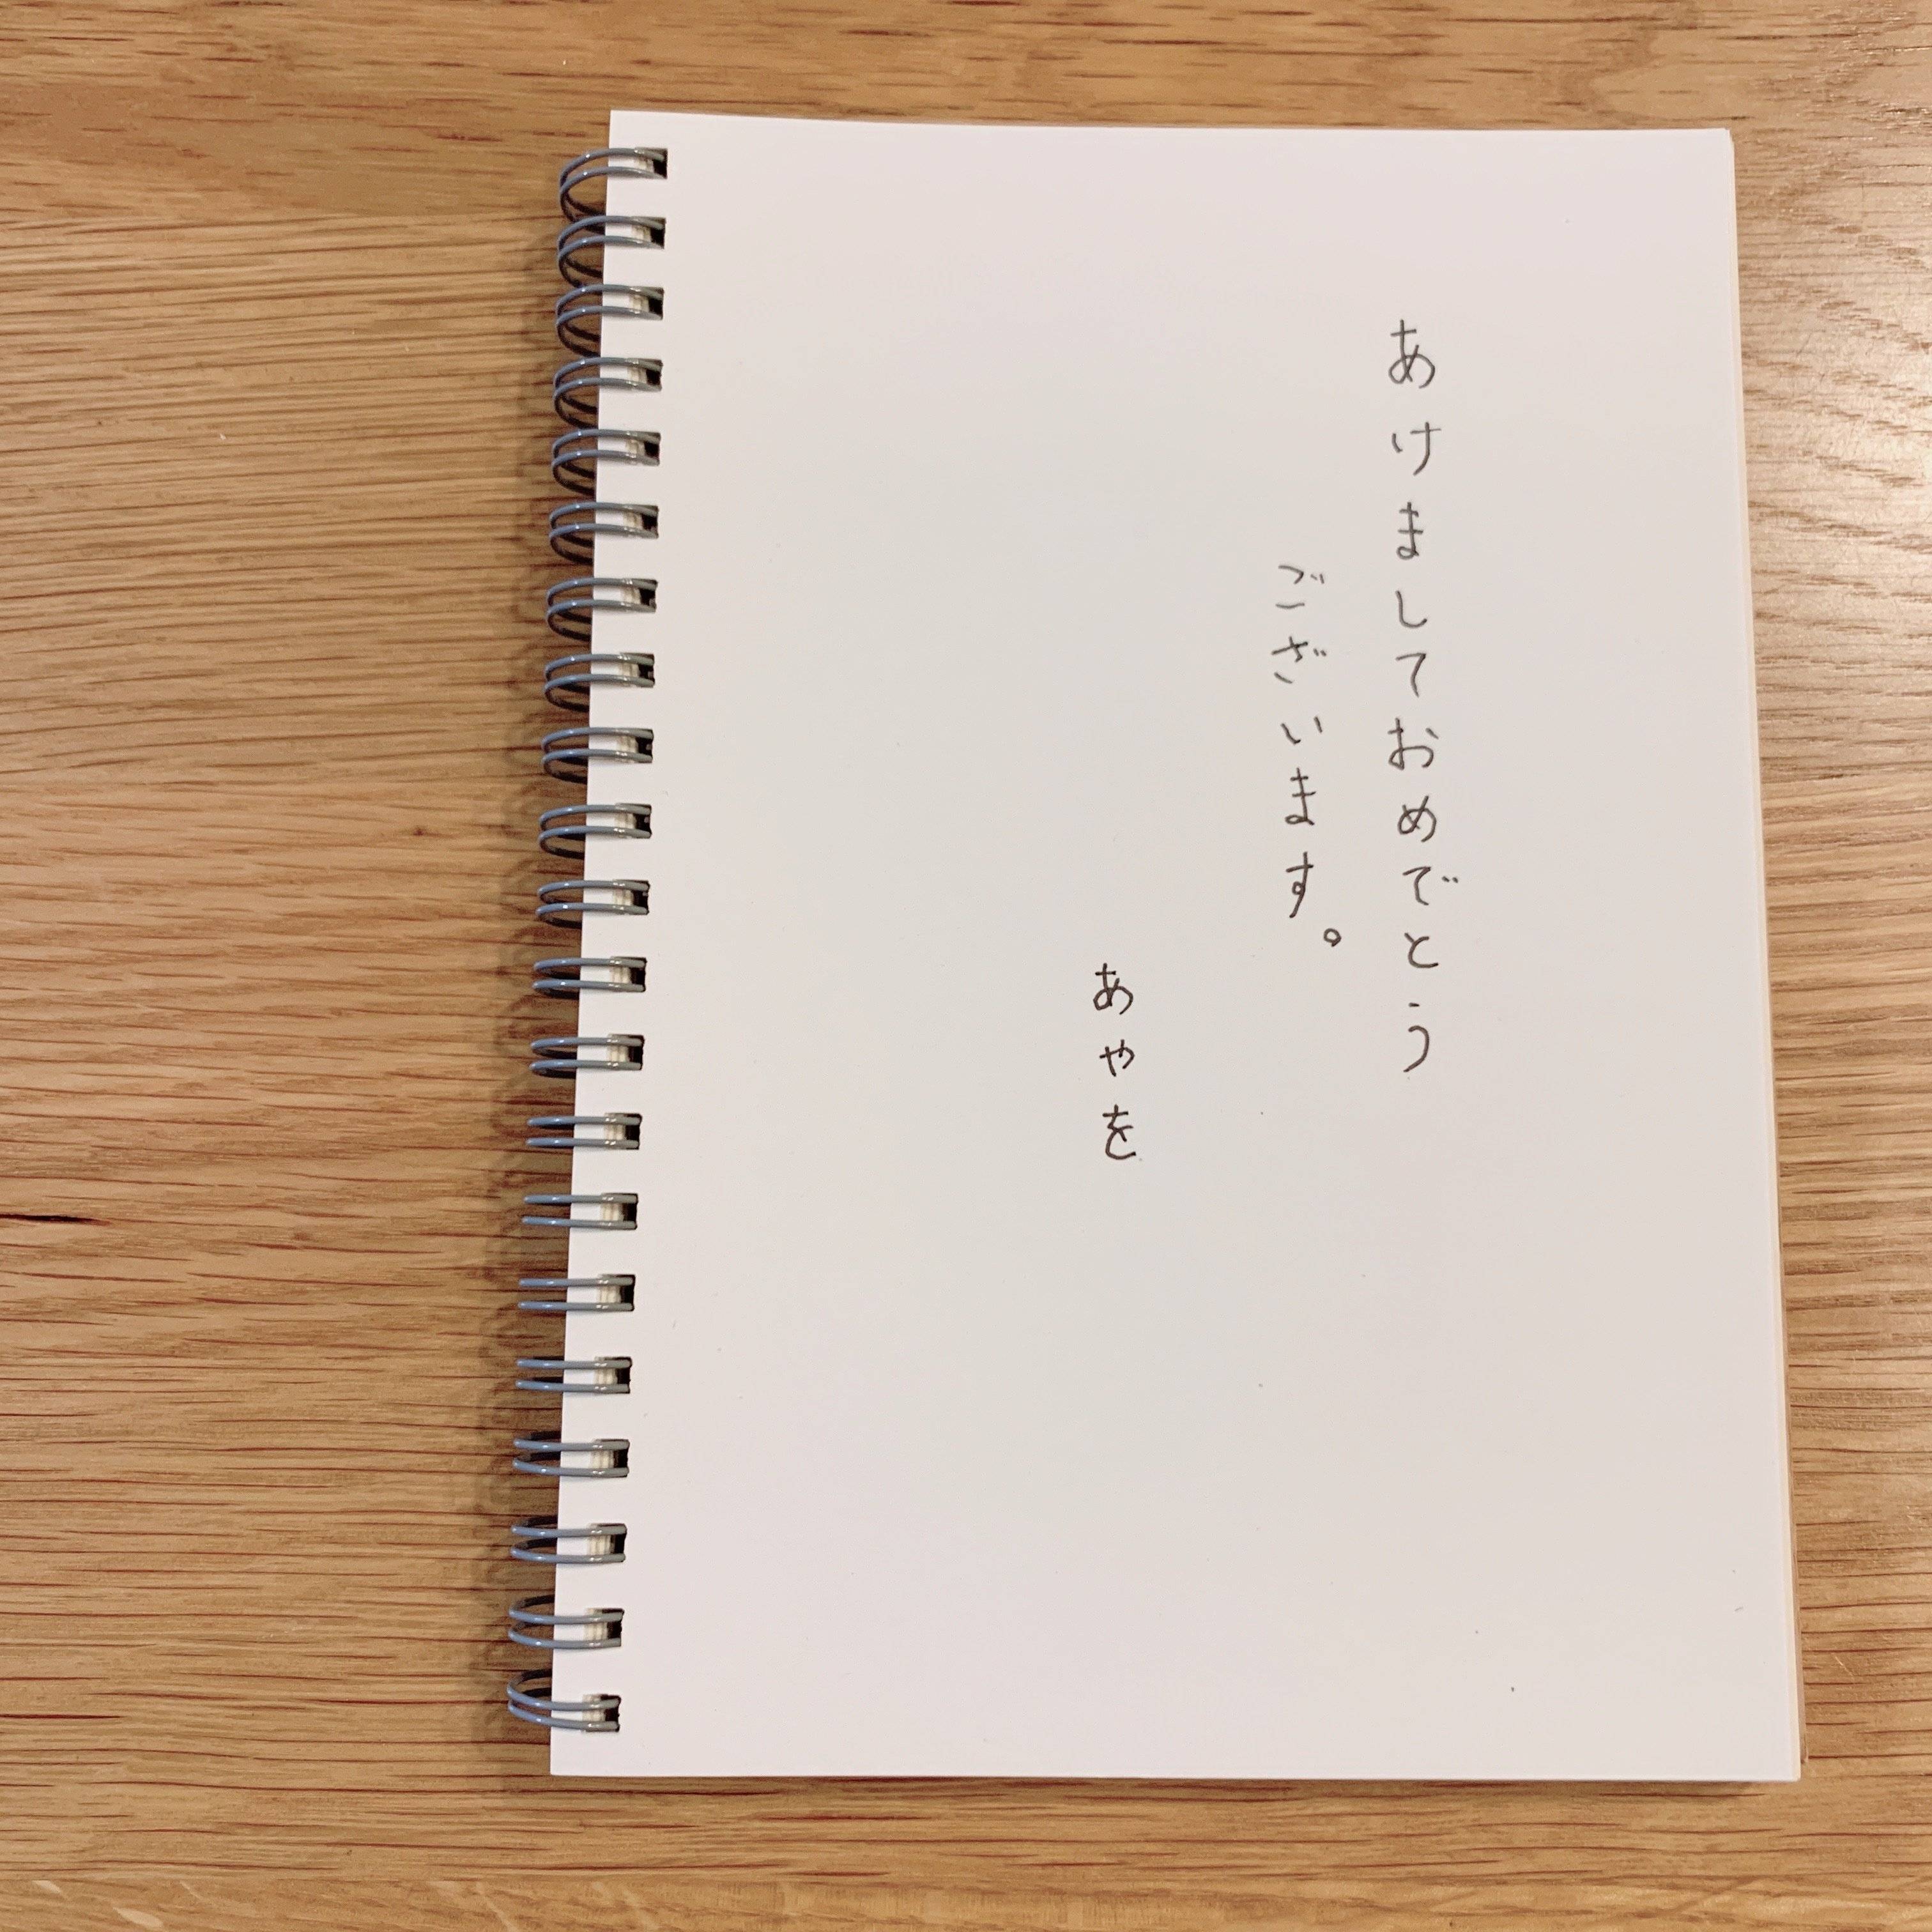 あけましておめでとう
ございます。
あやを